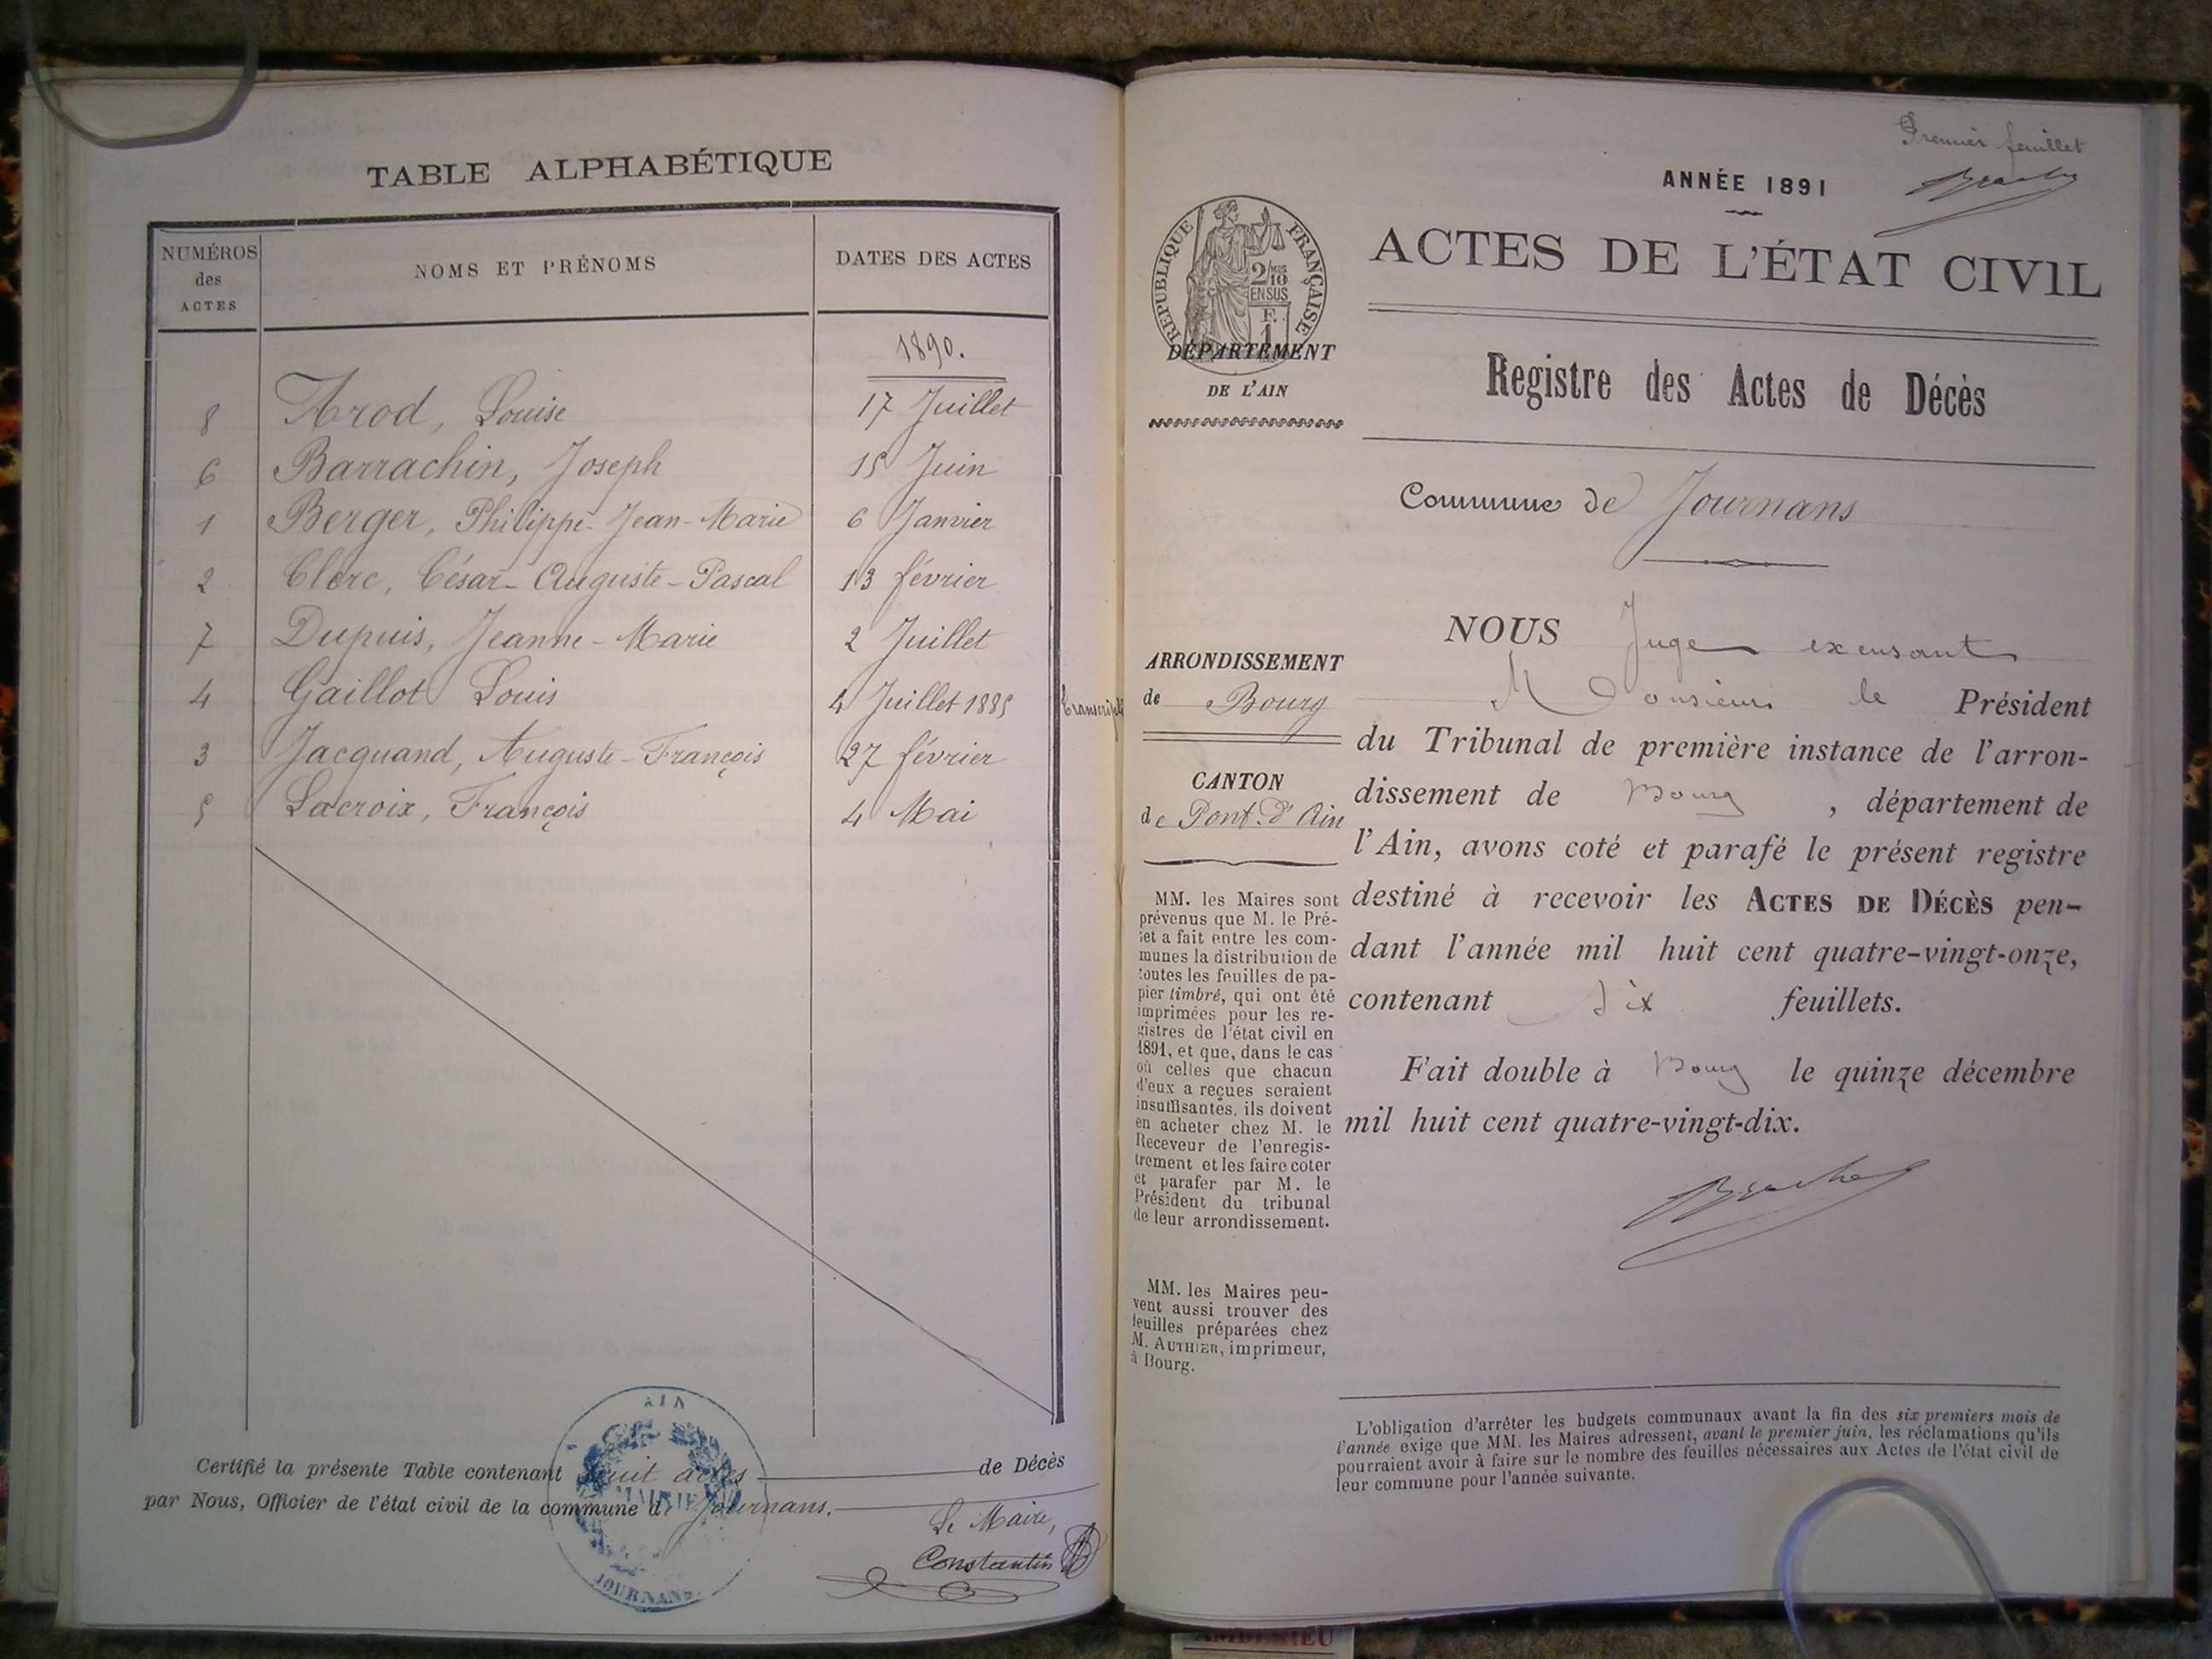 TABLE ALPHABÉTIQUE
NUMÉROS des ACTES
NOMS ET PRÉNOMS
DATES DES ACTES
1890.
8 Arod, Louise 17 Juillet
6 Barrachin, Joseph 15 Juin
1 Berger, Philippe-Jean-Marie 6 Janvier
2 Clerc, César-Auguste-Pascal 13 février
7 Dupuis, Jeanne-Marie 2 Juillet
4 Gaillot Louis 4 Juillet 1885
3 Jacquand, Auguste-François 27 février
5 Lacroix, François 4 Mai
Certifié la présente Table contenant huit actes de Décès
par Nous, Officier de l'état civil de la commune de Journans.
Le Maire,
Constantin
AIN
MAIRIE
JOURNANS
Premier feuillet
ANNÉE 1891
RÉPUBLIQUE FRANÇAISE
2/10
EN SUS
F.
1
ACTES DE L'ÉTAT CIVIL
DÉPARTEMENT
DE L'AIN
Registre des Actes de Décès
Commune de Journans
ARRONDISSEMENT
de Bourg
CANTON
de Pont-d'Ain
MM. les Maires sont
prévenus que M. le Pré-
fet a fait entre les com-
munes la distribution de
toutes les feuilles de pa-
pier timbré, qui ont été
imprimées pour les re-
gistres de l'état civil en
1891, et que, dans le cas
où celles que chacun
d'eux a reçues seraient
insuffisantes, ils doivent
en acheter chez M. le
Receveur de l'enregis-
trement et les faire coter
et parafer par M. le
Président du tribunal
de leur arrondissement.
MM. les Maires peu-
vent aussi trouver des
feuilles préparées chez
M. AUTHIER, imprimeur,
à Bourg.
NOUS Juge excusant
Monsieur le Président
du Tribunal de première instance de l'arron-
dissement de Bourg, département de
l'Ain, avons coté et parafé le présent registre
destiné à recevoir les ACTES DE DÉCÈS pen-
dant l'année mil huit cent quatre-vingt-onze,
contenant six feuillets.
Fait double à Bourg le quinze décembre
mil huit cent quatre-vingt-dix.
L'obligation d'arrêter les budgets communaux avant la fin des six premiers mois de
l'année exige que MM. les Maires adressent, avant le premier juin, les réclamations qu'ils
pourraient avoir à faire sur le nombre des feuilles nécessaires aux Actes de l'état civil de
leur commune pour l'année suivante.